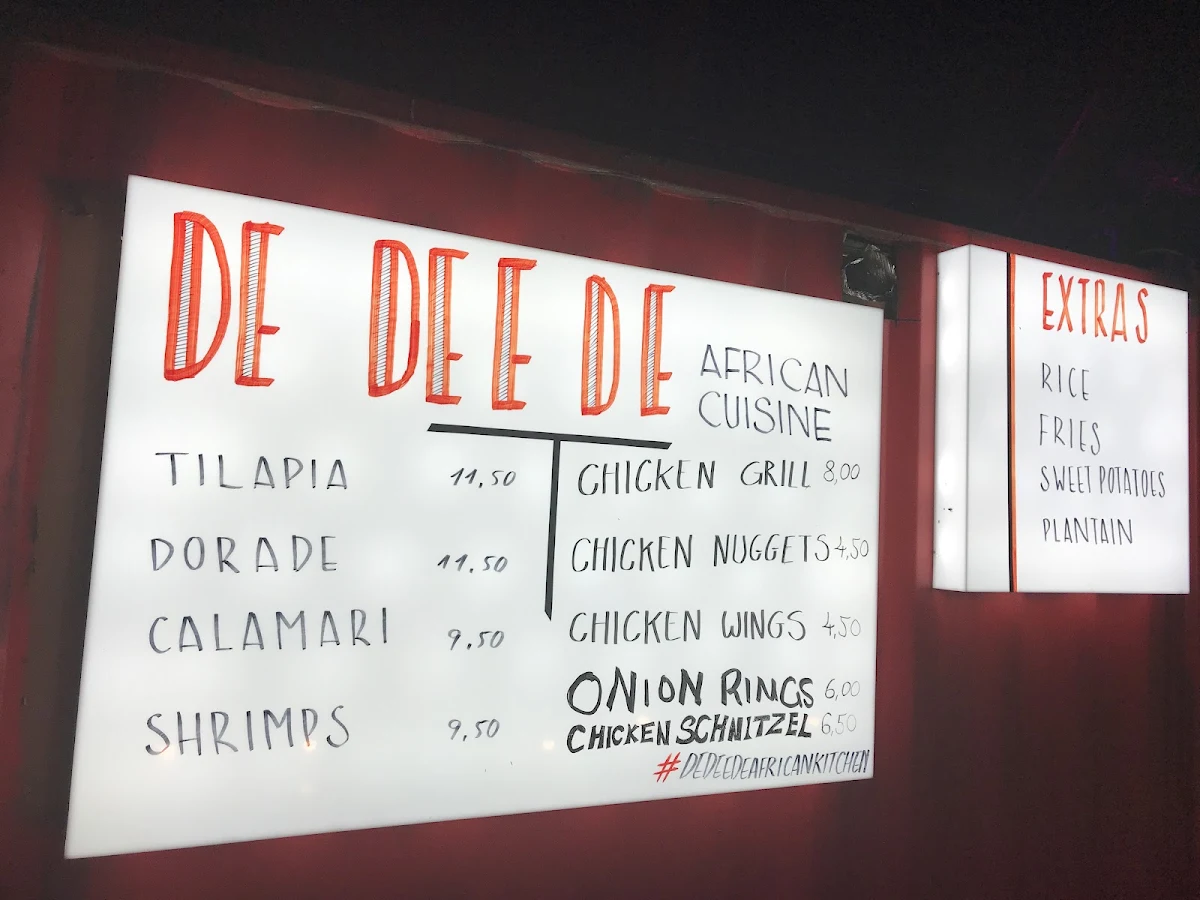 DE DEE DE
AFRICAN
CUISINE
TILAPIA 11,50
DORADE 11,50
CALAMARI 9,50
SHRIMPS 9,50
CHICKEN GRILL 8,00
CHICKEN NUGGETS 4,50
CHICKEN WINGS 4,50
ONION RINGS 6,00
CHICKEN SCHNITZEL 6,50
#DEDEEDEAFRICANKITCHEN
EXTRAS
RICE
FRIES
SWEET POTATOES
PLANTAIN